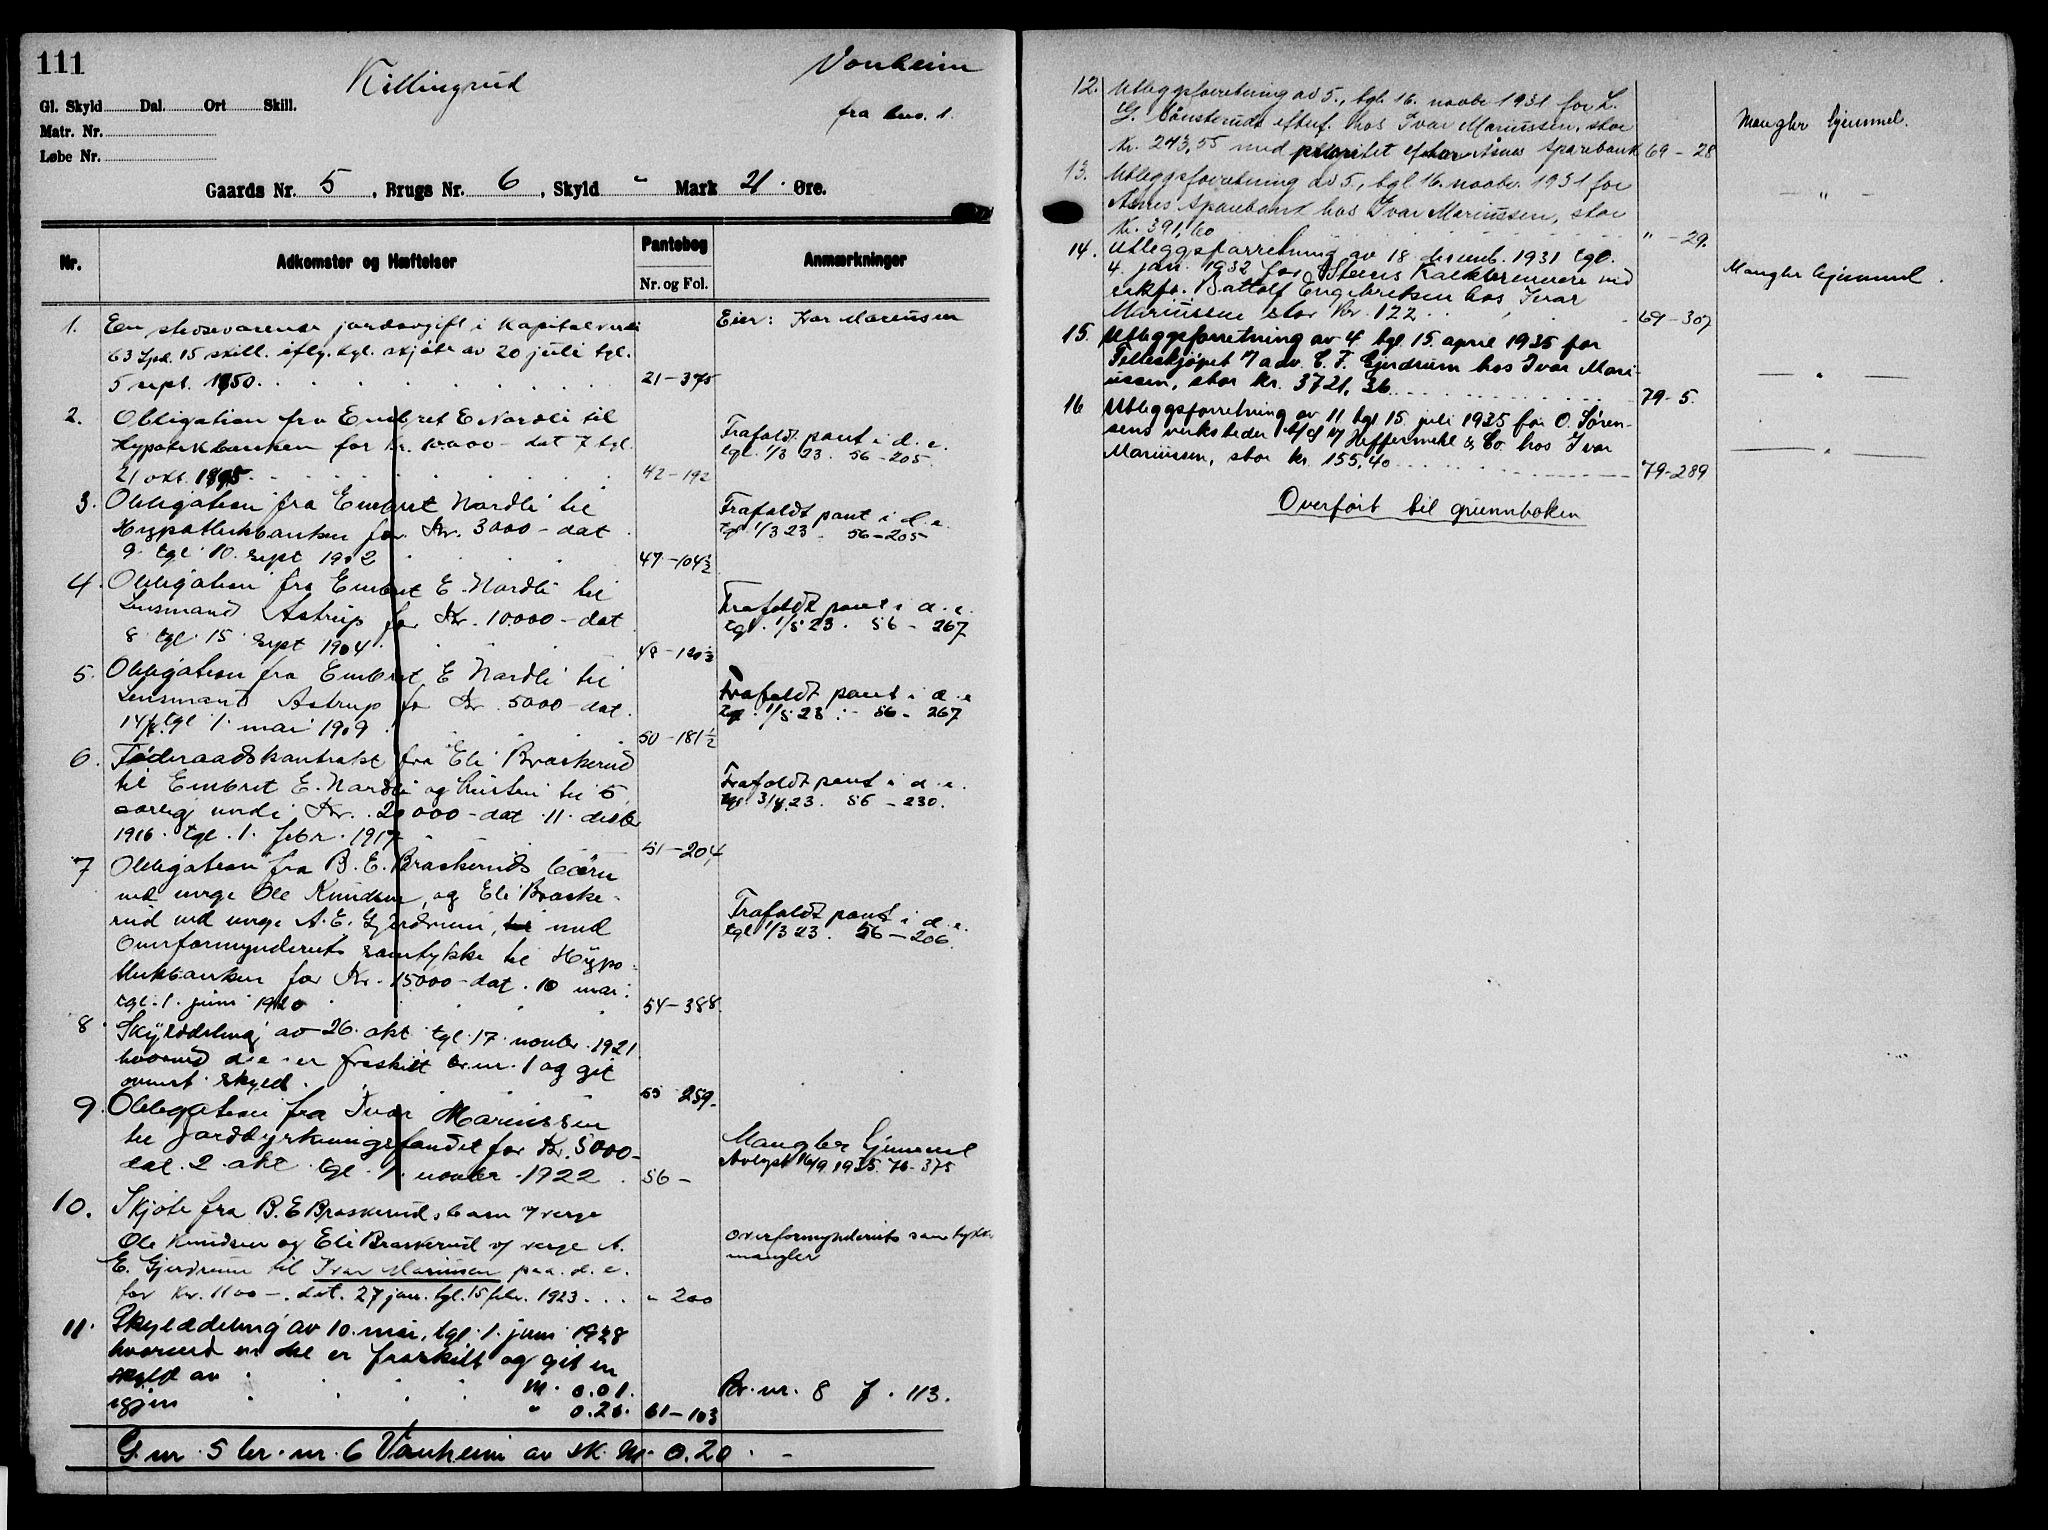 111
Killingrud
Vonheim
fra br.no. 1.
Gl. Skyld Dal. Ort Skill.
Matr. Nr.
Løbe Nr.
Gaards Nr. 5, Brugs Nr. 6, Skyld " Mark 21. Øre.
Nr.
Adkomster og Hæftelser
Pantebog
Nr. og Fol.
Anmærkninger
1. Een stedsevarende jordavgift i kapitalverdi Eier: Ivar Mariussen
63 Spd. 15 skill. iflg. tgl. skjøte av 20 juli tgl.
5 sept. 1850. 21-375
2. Obligation fra Embret E Nordli til
Hypotekbanken for Kr. 10000- dat 7 tgl. Frafaldt pant i d. e.
21 okt. 1895. 42-192 tgl. 1/3 23. 56-205.
3. Obligation fra Embret Nordli til
Hypothekbanken for Kr. 3000- dat Frafaldt pant i d. e.
9. tgl. 10. sept 1902 47-104½ tgl 1/3 23. 56-205
4. Obligation fra Embret E. Nordli til
Lensmand Astrup for Kr. 10.000- dat. Frafaldt pant i d. e.
8. tgl. 15. sept 1904. 48-120½ tgl. 1/5 23. 56-267
5. Obligation fra Embret E Nordli til
Lensmand Astrup for Kr. 5000- dat. Frafaldt pant i d. e
14/4 tgl 1. mai 1909. 50-181½ tgl. 1/5 23. 56-267
6. Føderaadskontrakt fra Eli Braskerud
til Embret E. Nordli og hustru til 5
aarlig verdi Kr. 20000- dat. 11. decbr Frafaldt pant i d. e.
1916. tgl. 1. febr. 1917 51-204 tgl 31/4 23. 56-230.
7 Obligation fra B. E. Braskeruds børn
ved verge Ole Knudsen, og Eli Braske-
rud ved verge A. E. Gjerdrum, med Frafaldt pant i d. e.
Overformynderiets samtykke til Hypo- tgl 1/3 23. 56-206.
thekbanken for Kr. 15000- dat. 10 mai.
tgl. 1. juni 1920 54-388.
8. Skylddeling av 26. okt tgl. 17. novbr. 1921
hvorved d. e. er fraskilt br.nr. 1 og git
ovennt. skyld. 55 259.
9. Obligation fra Ivar Mariussen
til Jorddyrkningsfondet for Kr. 5000- Mangler hjemmel
dat. 2. okt. tgl. 1. novbr. 1922. 56- Avlyst 16/9 1935. 76-375
10. Skjøte fra B. E Braskeruds barn v/ verge
Ole Knudsen og Eli Braskerud v/ verge A. Overformynderiets samtykke
E. Gjerdrum til Ivar Mariussen paa d. e. mangler
for Kr. 1100-. dat. 27 jan. tgl. 15 febr. 1923. . . " 200
11. Skylddeling av 10. mai, tgl. 1. juni 1928
hvorved en del er fraskilt og git en
skyld av M. 0.01. Br. nr. 8 f. 113.
igjen " 0.20. 61-103
G. nr. 5 br. nr. 6 Vonheim av sk. M. 0.20. -
12. Utleggsforretning av 5., tgl. 16. novbr. 1931 for L.
G. Sønsteruds efterf. hos Ivar Mariussen, stor Mangler hjemmel.
Kr. 243,55 med prioritet efter Åsnes Sparebank 69-28
13. Utleggsforretning av 5., tgl. 16. novbr. 1931 for
Åsnes Sparebank hos Ivar Mariussen, stor - " -
Kr. 391,60 " -29.
14. Utleggsforretning av 18. desemb. 1931 tgl.
4. jan. 1932 for Steens Traktorenvere ved Mangler hjemmel.
Battolf Engebretsen hos Ivar
Mariussen stor kr. 122. 69-307
15. Utleggsforretning av 4 tgl. 15. april 1935 for
Felleskjøpet v/ adv. E. F. Gjerdrum hos Ivar Mari- - " -
ussen, stor kr. 3721,36 79-5.
16 Utleggsforretning av 11 tgl 15. juli 1935 for O. Søren-
sens verksteder A/S v/ Heffermehl & Co. hos Ivar - " -
Mariussen, stor kr. 155,40 79-289
Overført til grunnboken